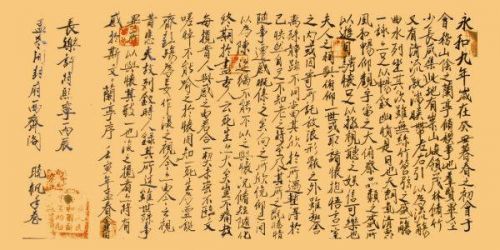 永和九年歲在癸丑暮春之初會于
會稽山陰之蘭亭脩稧事也群賢畢至
少長咸集此地有崇山峻領茂林脩竹
又有清流激湍映帶左右引以為流觴
曲水列坐其次雖無絲竹管弦之盛一觴
一詠亦足以暢敘幽情是日也天朗氣清惠
風和暢仰觀宇宙之大俯察品類之盛
所以遊目騁懷足以極視聽之娛信可樂也
夫人之相與俯仰一世或取諸懷抱悟言一室
之內或因寄所託放浪形骸之外雖趣舍
萬殊靜躁不同當其欣於所遇暫得於
己快然自足不知老之將至及其所之既倦情
隨事遷感慨係之矣向之所欣俛仰之間
以為陳迹猶不能不以之興懷況脩短隨化
終期於盡古人云死生亦大矣豈不痛哉
每攬昔人興感之由若合一契未嘗不臨文
嗟悼不能喻之於懷固知一死生為虛誕
齊彭殤為妄作後之視今亦由今之視
昔悲夫故列敘時人錄其所述雖世殊事
異所以興懷其致一也後之攬者亦將有
感於斯文 蘭亭序 壬寅孟春
長樂許將熙寧丙辰
孟冬開封府西齋閱